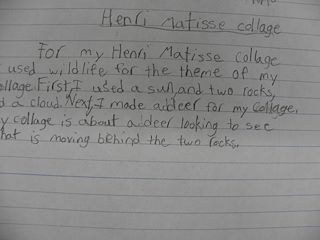 Henri Matisse collage
For my Henri Matisse collage
used wildlife for the theme of my
ollage. First, I used a sun, and two rocks,
d a cloud. Next, I made a deer for my collage.
y collage is about a deer looking to see
hat is moving behind the two rocks.